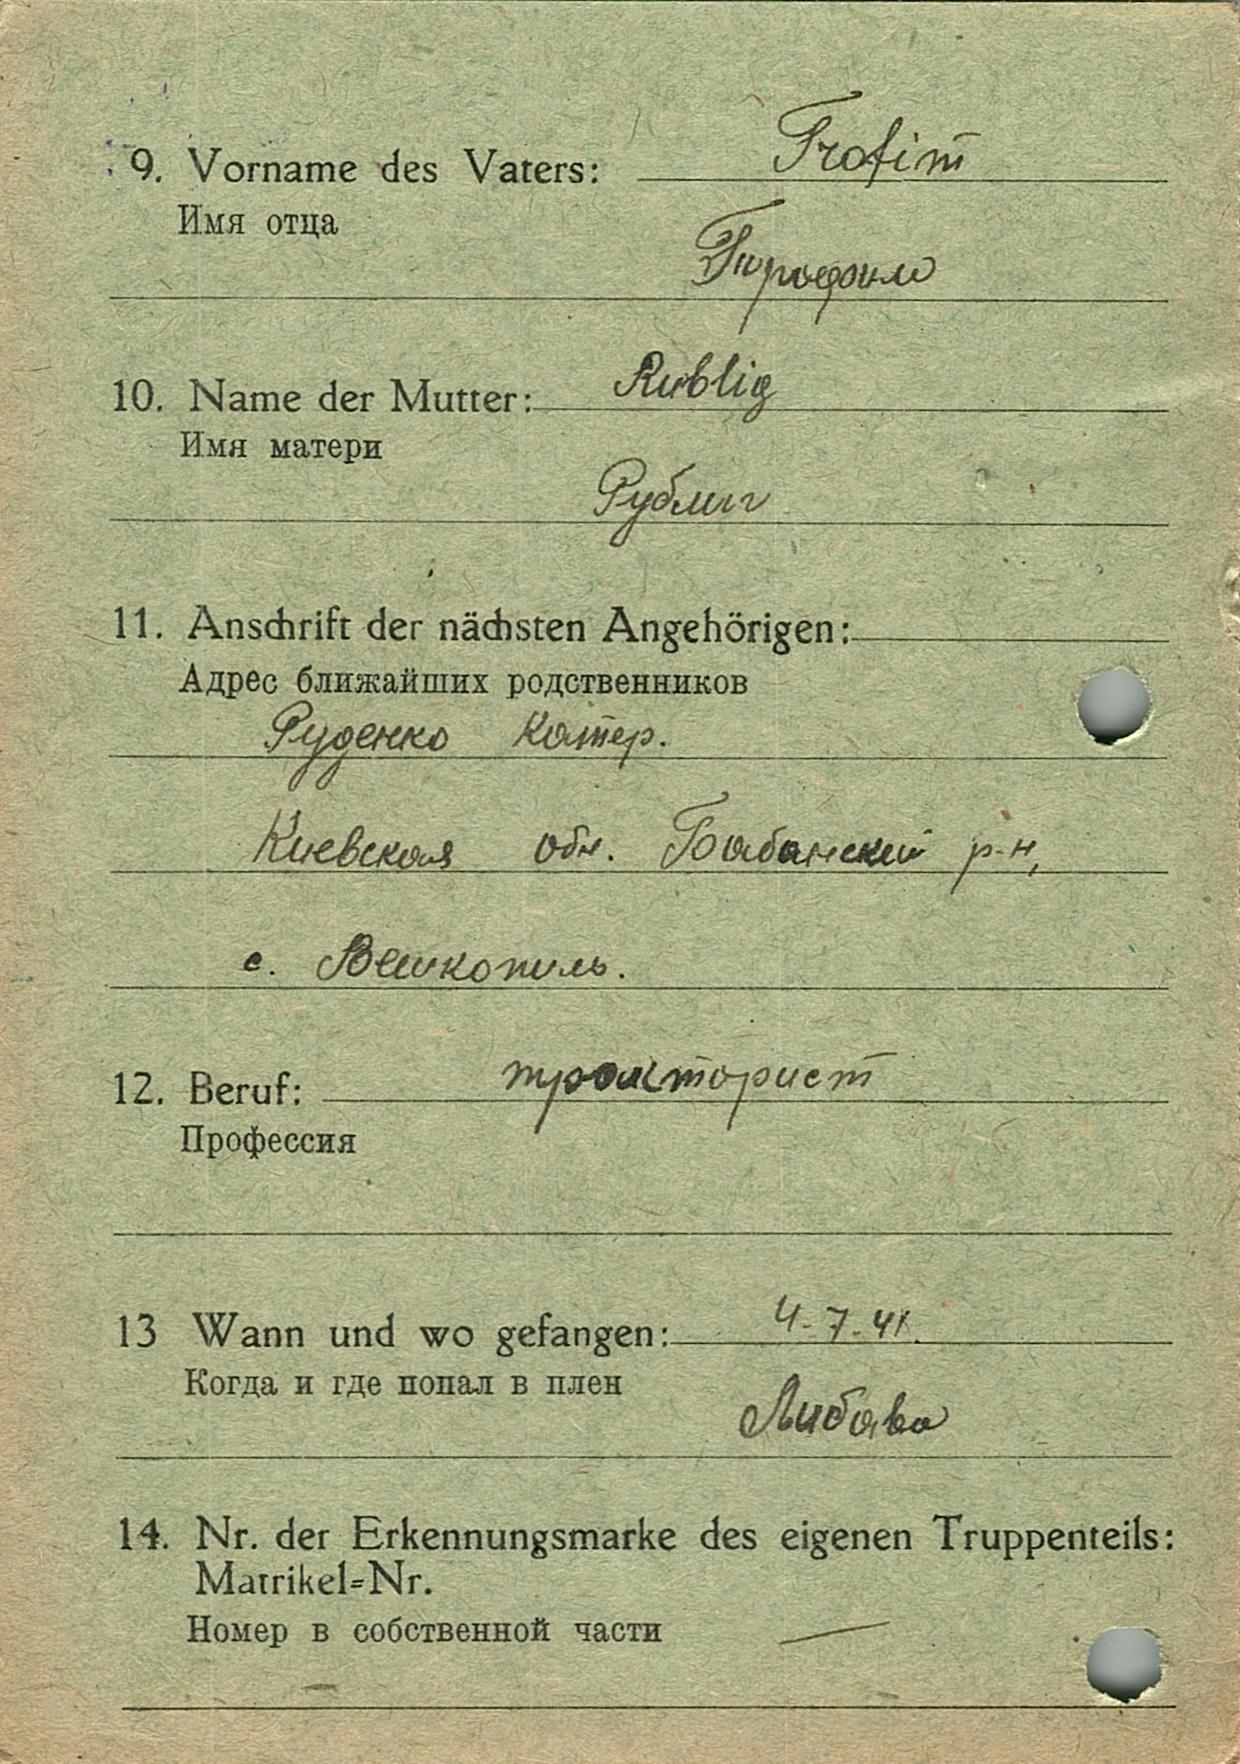 9. Vorname des Vaters: Trofim
Имя отца
Трофим
10. Name der Mutter: Rublig
Имя матери
Рублиг
11. Anschrift der nächsten Angehörigen:
Адрес ближайших родственников
Руденко Катер.
Киевская обл. Бабанский р-н,
с.
12. Beruf: тракторист
Профессия
13 Wann und wo gefangen: 4.7.41.
Когда и где попал в плен
Либава
14. Nr. der Erkennungsmarke des eigenen Truppenteils:
Matrikel=Nr.
Номер в собственной части —